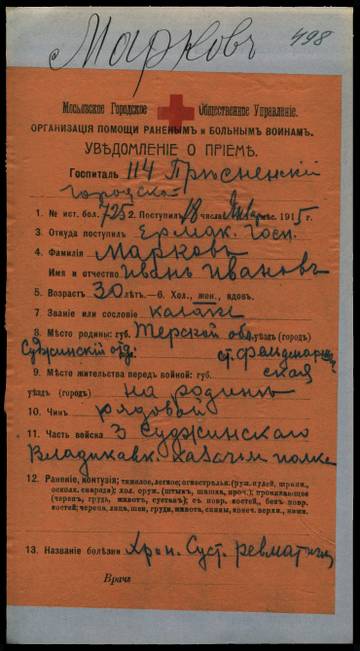 Марковъ 498
Московское Городское Общественное Управленіе.
ОРГАНИЗАЦІЯ ПОМОЩИ РАНЕНЫМЪ и БОЛЬНЫМЪ ВОИНАМЪ.
УВѢДОМЛЕНІЕ О ПРІЕМѢ.
Госпиталь 114 Прѣсненскій
городской
1. № ист. бол. 7252. Поступилъ 18 числа Января мѣс. 1915 г.
3. Откуда поступилъ Ермак. Госп.
4. Фамилія Марковъ
Имя и отчество Иванъ Ивановъ
5. Возрастъ 30 лѣтъ.—6. Хол., жен., вдовъ.
7. Званіе или сословіе казакъ
8. Мѣсто родины: губ. Терской обл. уѣздъ (городъ)
Суджинскій отд. ст. Фельдмаршальская
9. Мѣсто жительства передъ войной: губ.
уѣздъ (городъ) на родинѣ
10. Чинъ рядовой
11. Часть войска 3 Суджинскаго
Владикавк. казачьем полке
12. Раненіе, контузія; тяжелое, легкое; огнестрѣльн. (руж. пулей, шрапн.,
осколк. снаряда); хол. оруж. (штыкъ, шашка, проч.); проникающее
(черепъ, грудь, животъ, суставъ); съ повр. костей, безъ повр.
костей; черепа, лица, шеи, груди, живота, спины, конеч. верхн., нижн.
13. Названіе болѣзни Хрон. Суст. ревматизм
Врачъ